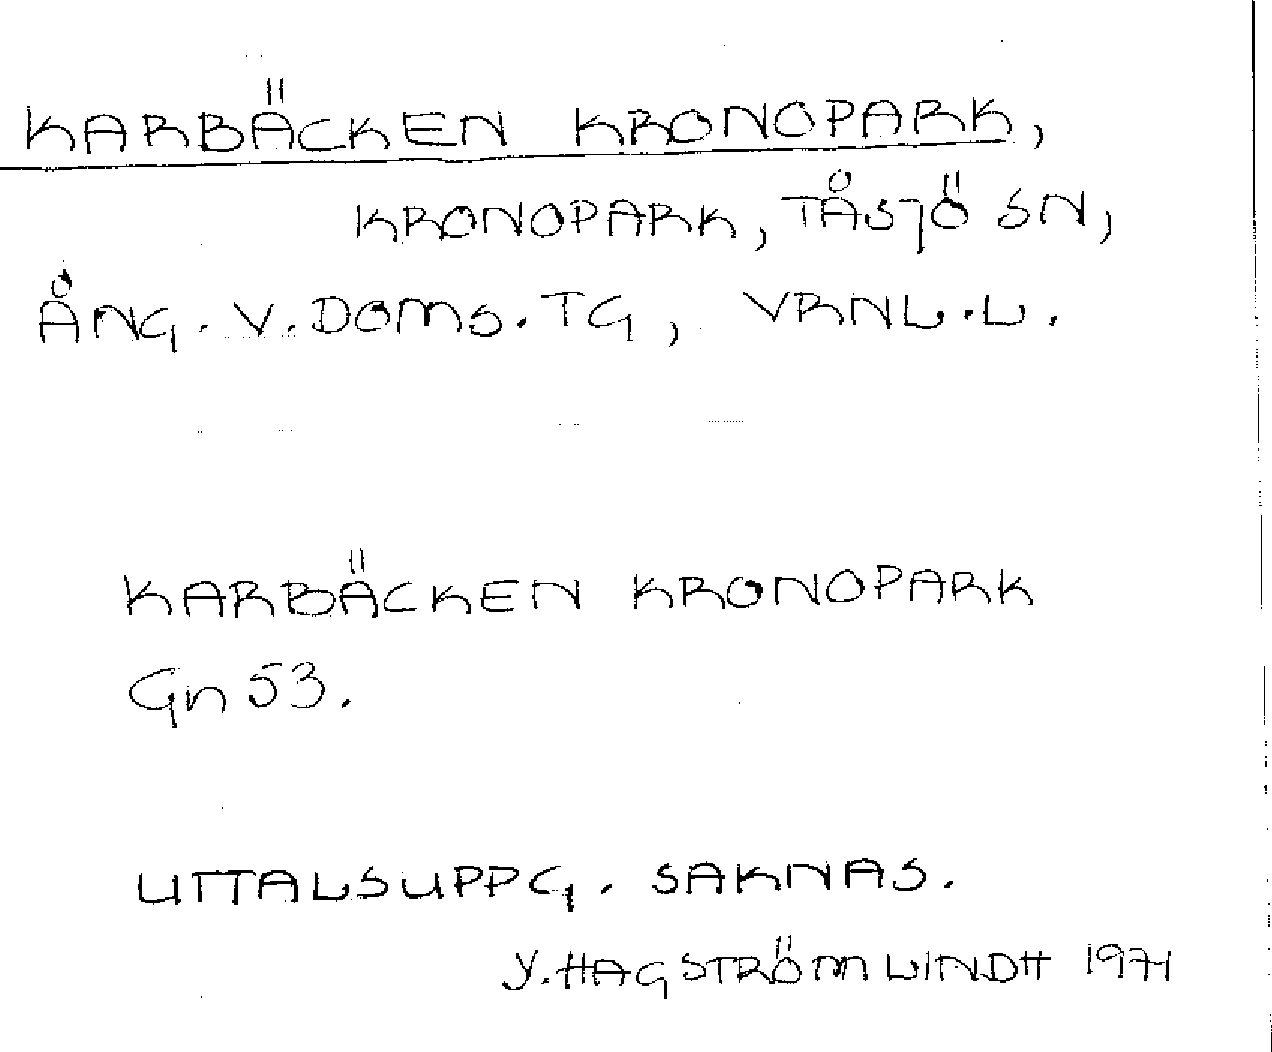 KARBÄCKEN KRONOPARK,
KRONOPARK, TÅSJÖ SN,
ÅNG. V. DOMS. TG, VRNL.L.
KARBÄCKEN KRONOPARK
Gn 53.
UTTALSUPPG. SAKNAS.
Y. HAGSTRÖM LINDH 1971